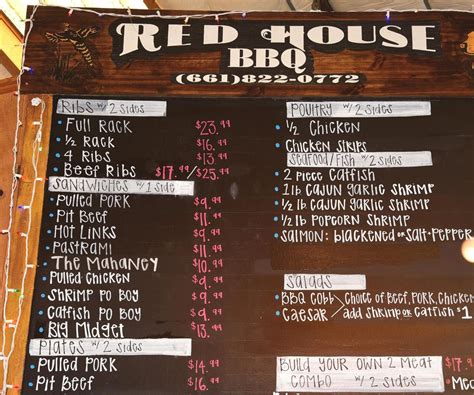 RED HOUSE
BBQ
(661)822-0772
RIBS w/ 2 SIDES
FULL RACK $23.99
1/2 RACK $16.99
4 RIBS $13.99
BEEF RIBS $17.99/$25.99
SANDWICHES w/ 1 SIDE
PULLED PORK $9.99
PIT BEEF $11.99
HOT LINKS $9.99
PASTRAMI $11.99
THE MAHANEY $10.99
PULLED CHICKEN $9.99
SHRIMP PO BOY $9.99
CATFISH PO BOY $9.99
BIG MIDGET $13.99
PLATES w/ 2 SIDES
PULLED PORK $14.99
PIT BEEF $16.99
POULTRY w/ 2 SIDES
1/2 CHICKEN
CHICKEN STRIPS
SEAFOOD/FISH w/ 2 SIDES
2 PIECE CATFISH
1 lb CAJUN GARLIC SHRIMP
1/2 lb CAJUN GARLIC SHRIMP
1/2 lb POPCORN SHRIMP
SALMON: BLACKENED OR SALT-PEPPER
SALADS
BBQ COBB/CHOICE OF BEEF, PORK, CHICKEN
CAESAR/ADD SHRIMP OR CATFISH $1
BUILD YOUR OWN 2 MEAT
COMBO w/ 2 SIDES
$17.99